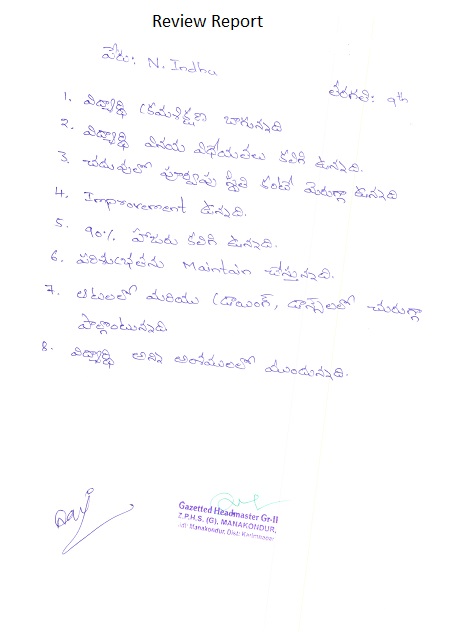 Review Report
పేరు: N. Indhu
తరగతి: 9th
1. విద్యార్థి క్రమశిక్షణ బాగున్నది
2. విద్యార్థి వినయ విధేయతలు కలిగి ఉన్నది.
3. చదువులో పూర్వపు స్థితి కంటే మెరుగ్గా ఉన్నది
4. Improvement ఉన్నది.
5. 90% హాజరు కలిగి ఉన్నది.
6. పరిశుభ్రతను Maintain చేస్తున్నది.
7. ఆటలలో మరియు డ్రాయింగ్, డాన్స్‌లలో చురుగ్గా
పాల్గొంటున్నది
8. విద్యార్థి అన్ని అంశములలో ముందున్నది.
Gazetted Headmaster Gr-II
Z.P.H.S. (G), MANAKONDUR,
Manakondur, Dist: Karimnagar